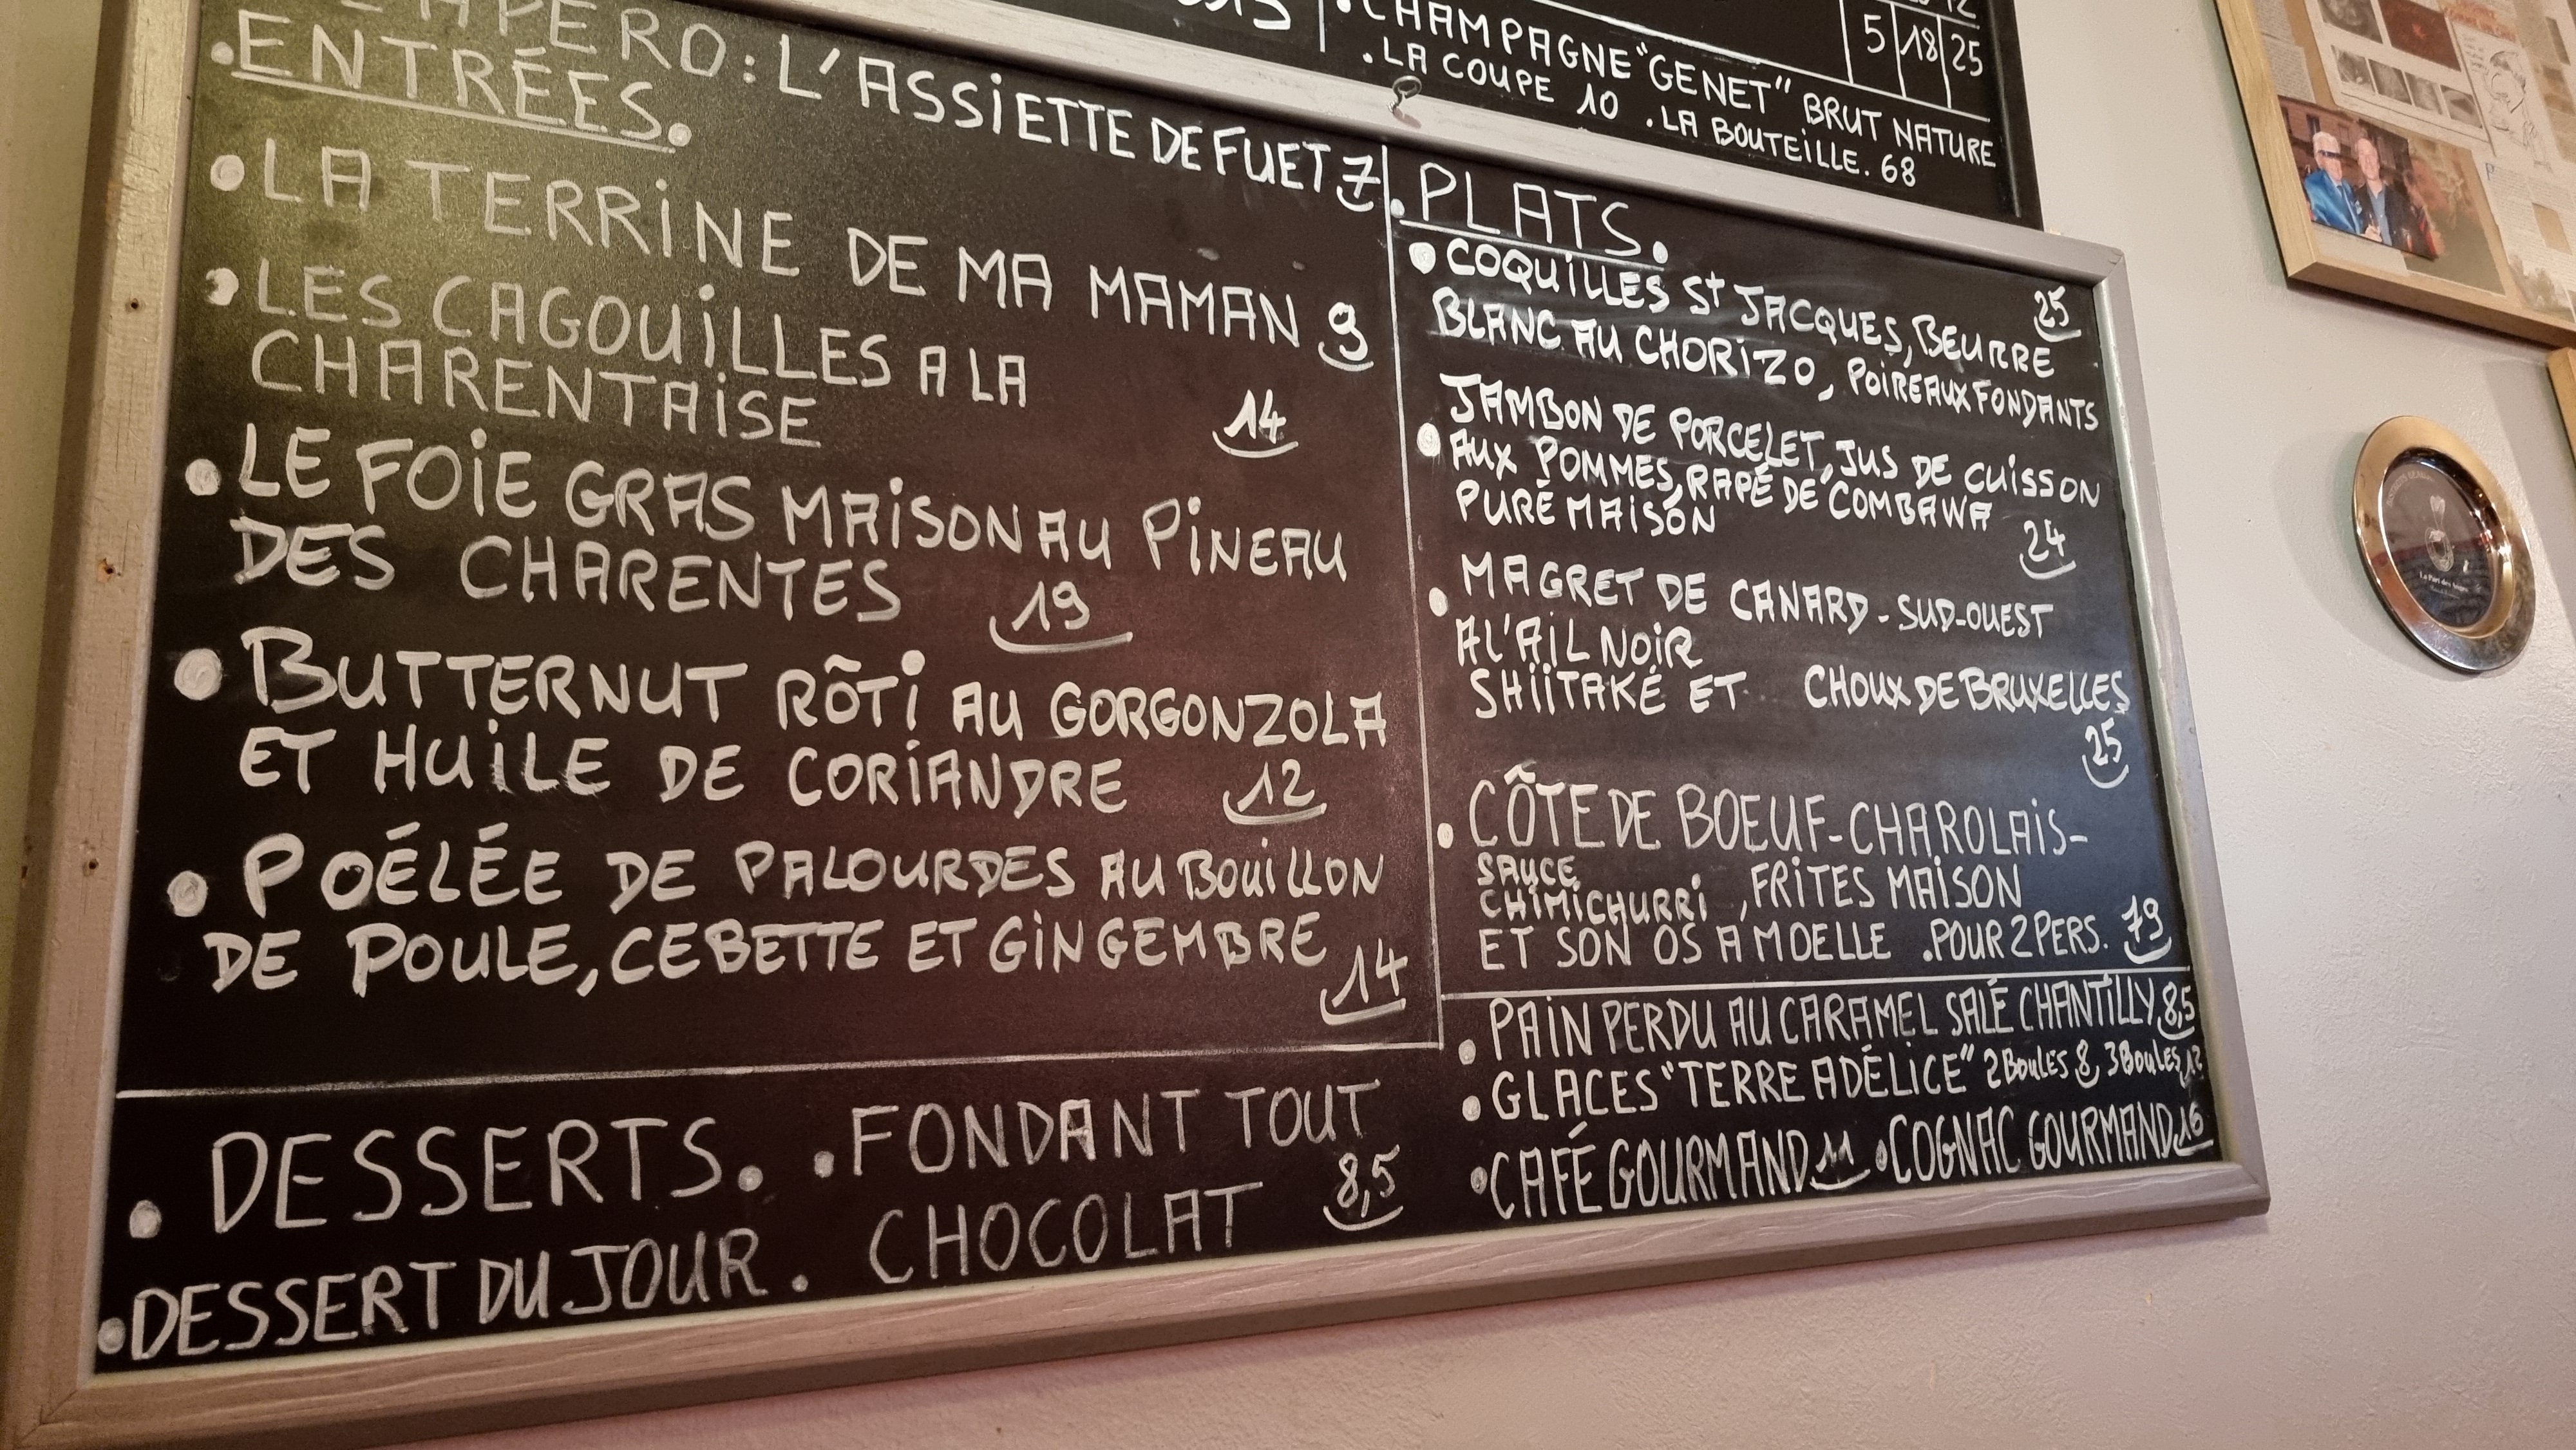 APERO: L'ASSIETTE DE FUET 7
.ENTRÉES.
• LA TERRINE DE MA MAMAN 9
• LES CAGOUILLES A LA
CHARENTAISE 14
• LE FOIE GRAS MAISON AU PINEAU
DES CHARENTES 19
• BUTTERNUT RÔTI AU GORGONZOLA
ET HUILE DE CORIANDRE 12
• POÉLÉE DE PALOURDES AU BOUILLON
DE POULE, CEBETTE ET GINGEMBRE
14
5 18 25
.CHAMPAGNE "GENET" BRUT NATURE
.LA COUPE 10 .LA BOUTEILLE. 68
.PLATS.
• COQUILLES St JACQUES, BEURRE 25
BLANC AU CHORIZO, POIREAUX FONDANTS
• JAMBON DE PORCELET, JUS DE CUISSON
AUX POMMES, RAPÉ DE COMBAWA
PURÉ MAISON 24
• MAGRET DE CANARD - SUD-OUEST
A L'AIL NOIR
SHIITAKÉ ET CHOUX DE BRUXELLES
25
• CÔTE DE BOEUF - CHAROLAIS -
SAUCE
CHIMICHURRI , FRITES MAISON
ET SON OS A MOELLE .POUR 2 PERS. 79
. DESSERTS. .FONDANT TOUT
CHOCOLAT 8,5
• DESSERT DU JOUR .
• PAIN PERDU AU CARAMEL SALÉ CHANTILLY 8,5
• GLACES "TERRE ADÉLICE" 2 BOULES 8, 3 BOULES 12
• CAFÉ GOURMAND 11 • COGNAC GOURMAND 16